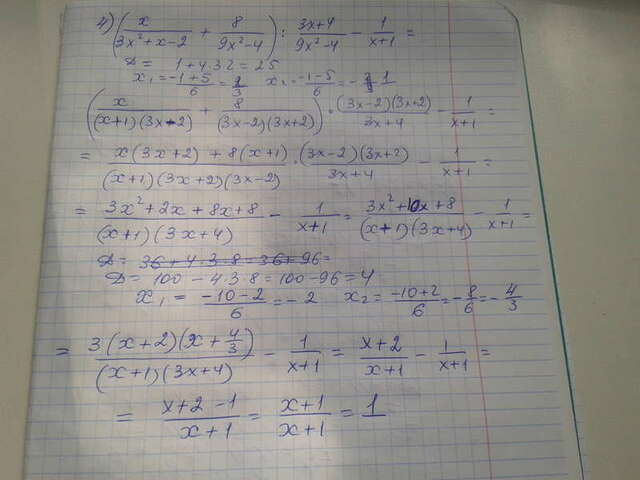 4) (x/(3x²+x-2) + 8/(9x²-4)) : (3x+4)/(9x²-4) - 1/(x+1) =
D = 1+4·3·2 = 25
x₁ = (-1+5)/6 = 2/3 x₂ = (-1-5)/6 = -1
(x/((x+1)(3x-2)) + 8/((3x-2)(3x+2))) · ((3x-2)(3x+2))/(3x+4) - 1/(x+1) =
= (x(3x+2) + 8(x+1))/((x+1)(3x+2)(3x-2)) · ((3x-2)(3x+2))/(3x+4) - 1/(x+1) =
= (3x²+2x+8x+8)/((x+1)(3x+4)) - 1/(x+1) = (3x²+10x+8)/((x+1)(3x+4)) - 1/(x+1) =
D = 36+4·3·8=36+96=
D = 100-4·3·8=100-96=4
x₁ = (-10-2)/6 = -2 x₂ = (-10+2)/6 = -8/6 = -4/3
= (3(x+2)(x+4/3))/((x+1)(3x+4)) - 1/(x+1) = (x+2)/(x+1) - 1/(x+1) =
= (x+2-1)/(x+1) = (x+1)/(x+1) = 1